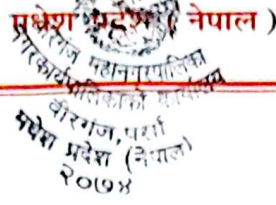 मधेश प्रदेश ( नेपाल )
वीरगंज महानगरपालिका
नगरकार्यपालिकाको कार्यालय
वीरगंज, पर्सा
मधेश प्रदेश (नेपाल)
२०७४